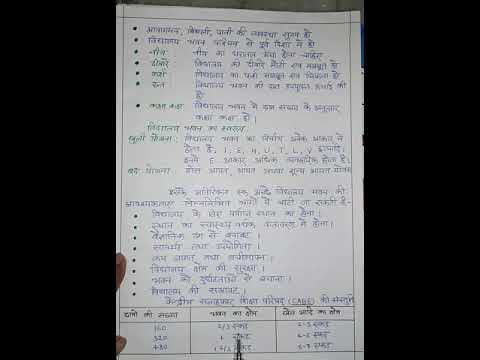 आवागमन, बिजली, पानी की व्यवस्था सुगम हो
विद्यालय भवन पश्चिम से पूर्व दिशा में हो
नींव नींव का धरातल कड़ा होना चाहिए
दीवारें विद्यालय की दीवारें मोटी एवं मजबूत हो
फर्श विद्यालय का फर्श मजबूत एवं चिकना हो
छत विद्यालय भवन की छत उपयुक्त ऊंचाई की हो
कक्षा कक्ष विद्यालय भवन में छात्र संख्या के अनुसार कक्षा कक्ष हो।
विद्यालय भवन का स्वरूप
खुली योजना विद्यालय भवन का निर्माण अनेक आकार में
होता है, I, E, H, U, T, L, Y इत्यादि
इनमें E आकार अधिक होता है।
बंद योजना गोल आयत, आयत अथवा शून्य आयत
इसके अतिरिक्त एक अच्छे विद्यालय भवन की
आवश्यकताएं निम्नलिखित भागों में बांटी जा सकती है-
विद्यालय के लिए पर्याप्त स्थान का होना।
स्थान का स्वास्थ्य वर्धक वातावरण में होना।
वैज्ञानिक ढंग से बनावट।
सामर्थ्य तथा उपयोगिता।
कम लागत तथा
विद्यालय क्षेत्र की सुरक्षा।
भवन को दुर्घटनाओं से बचाना।
विद्यालय की सजावट।
केन्द्रीय सलाहकार शिक्षा परिषद (CABE) की संस्तुति
छात्रों की संख्या भवन का क्षेत्र खेल आदि का क्षेत्र
160 2/3 एकड़ 2-3 एकड़
320 1 एकड़
480 एकड़